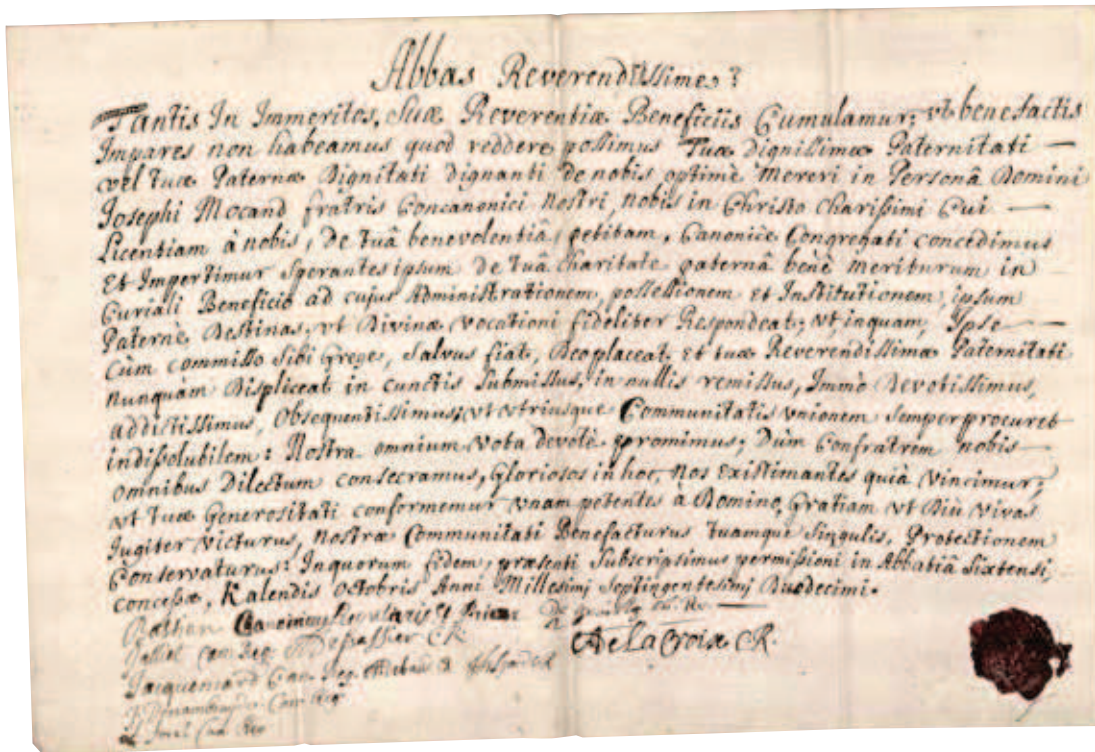 Abbas Reverendissime:
Tantis In Immeritos, Suæ Reverentiæ Beneficiis Cumulamur; vt benefactis
Impares non habeamus quod reddere possimus Tuæ dignissimæ Paternitati —
vel tuæ Paternæ Dignitati dignanti de nobis optimè mereri in Personâ Domini
Josephi Mocand fratris Conćanonici nostri, nobis in Christo charissimi Cui —
Licentiam à nobis, de tuâ benevolentiâ, petitam, Canonicè Congregati concedimus
Et Impertimur Sperantes ipsum de tuâ charitate paternâ benè meriturum in —
Curiali Beneficio ad cujus Administrationem, possessionem et Institutionem, ipsum
Paternè Destinas, vt Divinæ vocationi fideliter Respondeat; vt, inquam, Ipse —
Cùm commisso Sibi Grege, Salvus fiat, Deo placeat, et tuæ Reverendissimæ Paternitati
nunquàm Displiceat in cunctis Submissus, in nullis remissus, Immò Devotissimus,
addictissimus, Obsequentissimus; vt vtriusque Communitatis vnionem Semper procuret
indissolubilem: Nostra omnium Vota devotè promimus; Dùm Confratrem nobis —
omnibus Dilectum consecramus, Gloriosos in hoc, nos existimantes quià Vincimur,
vt tuæ Generositati conformemur vnam petentes à Domino, Gratiam vt Diù vivas
Jugiter victurus, nostræ Communitati Benefacturus tuamque Singulis, Protectionem
Conservaturus: Inquorum fidem, præsenti Subscripsimus permissioni in Abbatiâ Sixtensi,
concessæ, Kalendis Octobris Anni Millesimj Septingentesimj Duodecimi.
Canonicus Regularis & Prior
Can. Reg. Depassier C R. DelaCroix C R.
Jacquemard Can. Reg.
Can Reg
Can Reg